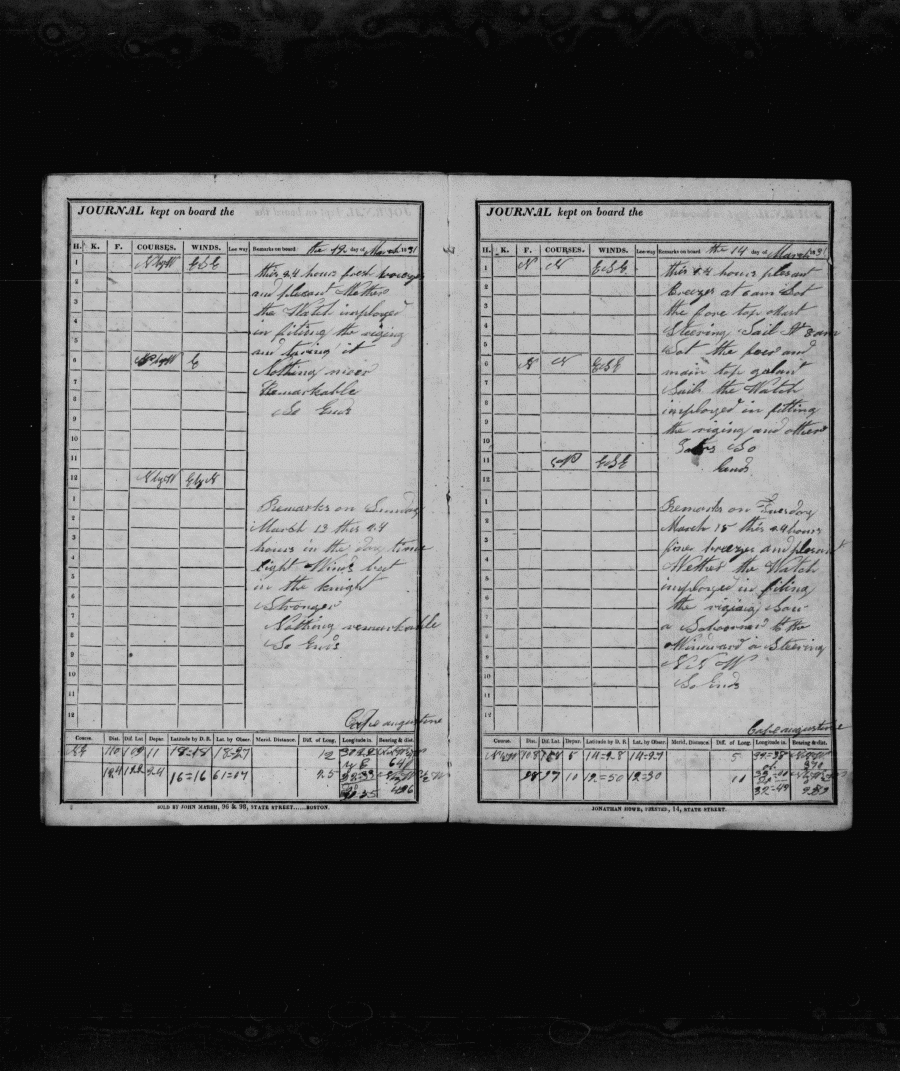 JOURNAL kept on board the
H. K. F. COURSES. WINDS. Lee way Remarks on board the 12 day of March 1831
1 N by W ESE
this 24 hours fresh breezes
2
and plesant Wether
3
the Watch imployed
4
in fiting the riging
5
and taring it
6 N by W E
Nothing more
7
Remarkable
8
So Ends
9
10
11
12 N by W E by N
1
Remarks on Sunday
2
March 13 this 24
3
hours in the day time
4
light Winds but
5
in the knight
6
Stronger
7
Nothing remarkable
8
So Ends
9
10
11
12
Cape augustine
Course. Dist. Dif. Lat. Depar. Latitude by D. R. Lat. by Obser. Merid. Distance. Diff. of Long. Longitude in. Bearing & dist.
110 109 11 18=18 18=27 12
124 122 24 16=16 25
SOLD BY JOHN MARSH, 96 & 98, STATE STREET......BOSTON.
JOURNAL kept on board the
H. K. F. COURSES. WINDS. Lee way Remarks on board the 14 day of March 1831
1 N N ESE
this 24 hours plesant
2
Breezes at 6 am Sot
3
the fore top Mast
4
Steering Sail At 8 am
5
Sot the fore and
6 N N ESE
main top galant
7
Sails the Watch
8
imployed in fitting
9
the riging and other
10
So
11 ESE
Ends
12
1
Remarks on Tuesday
2
March 15 this 24 hours
3
fine breezes and plesant
4
Wether the Watch
5
imployed in fiting
6
the riging Saw
7
a Schooner to the
8
Windward a Steering
9
N N W
10
So Ends
11
12
Cape augustine
Course. Dist. Dif. Lat. Depar. Latitude by D. R. Lat. by Obser. Merid. Distance Diff. of Long. Longitude in. Bearing & dist.
108 6 14=28 14=27 5
10 12=50 12=30 11
32=49
JONATHAN HOWE, PRINTER, 14, STATE STREET.